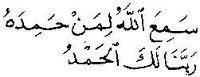 سَمِعَ اللّٰهُ لِمَنْ حَمِدَهُ
رَبَّنَا لَكَ الْحَمْدُ